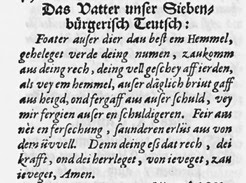 Das Vatter unser Sieben-
bürgerisch Teutsch:
Foater auser dier dau best em Hemmel,
geheleget verde deing numen, zaukomm
aus deing rech, deing vell geschey aff ierden,
als vey em hemmel, auser däglich briut gaff
aus heigd, ond fergaff aus auser schuld, vey
mir fergien auser en schuldigeren. Feir aus
net en fersechung, saunderen erlüs aus von
dem üvvell. Denn deing eß dat rech, dei
krafft, ond dei herrleget, von ieveget, zau
ieveget, Amen.